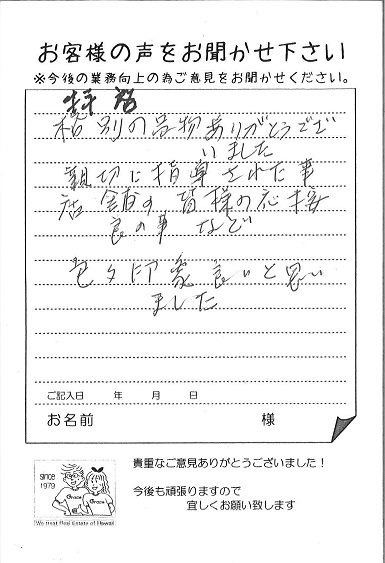 お客様の声をお聞かせ下さい
※今後の業務向上の為ご意見をお聞かせください。
格別の品物ありがとうござ
いました
親切に指導された事
店舗の皆様の応接
良の事など
色々印象良いと思い
ました
ご記入日 年 月 日
お名前 様
貴重なご意見ありがとうございました！
今後も頑張りますので
宜しくお願い致します
since
1979
Grace
Grace
We Heat Real Estate of Hawaii